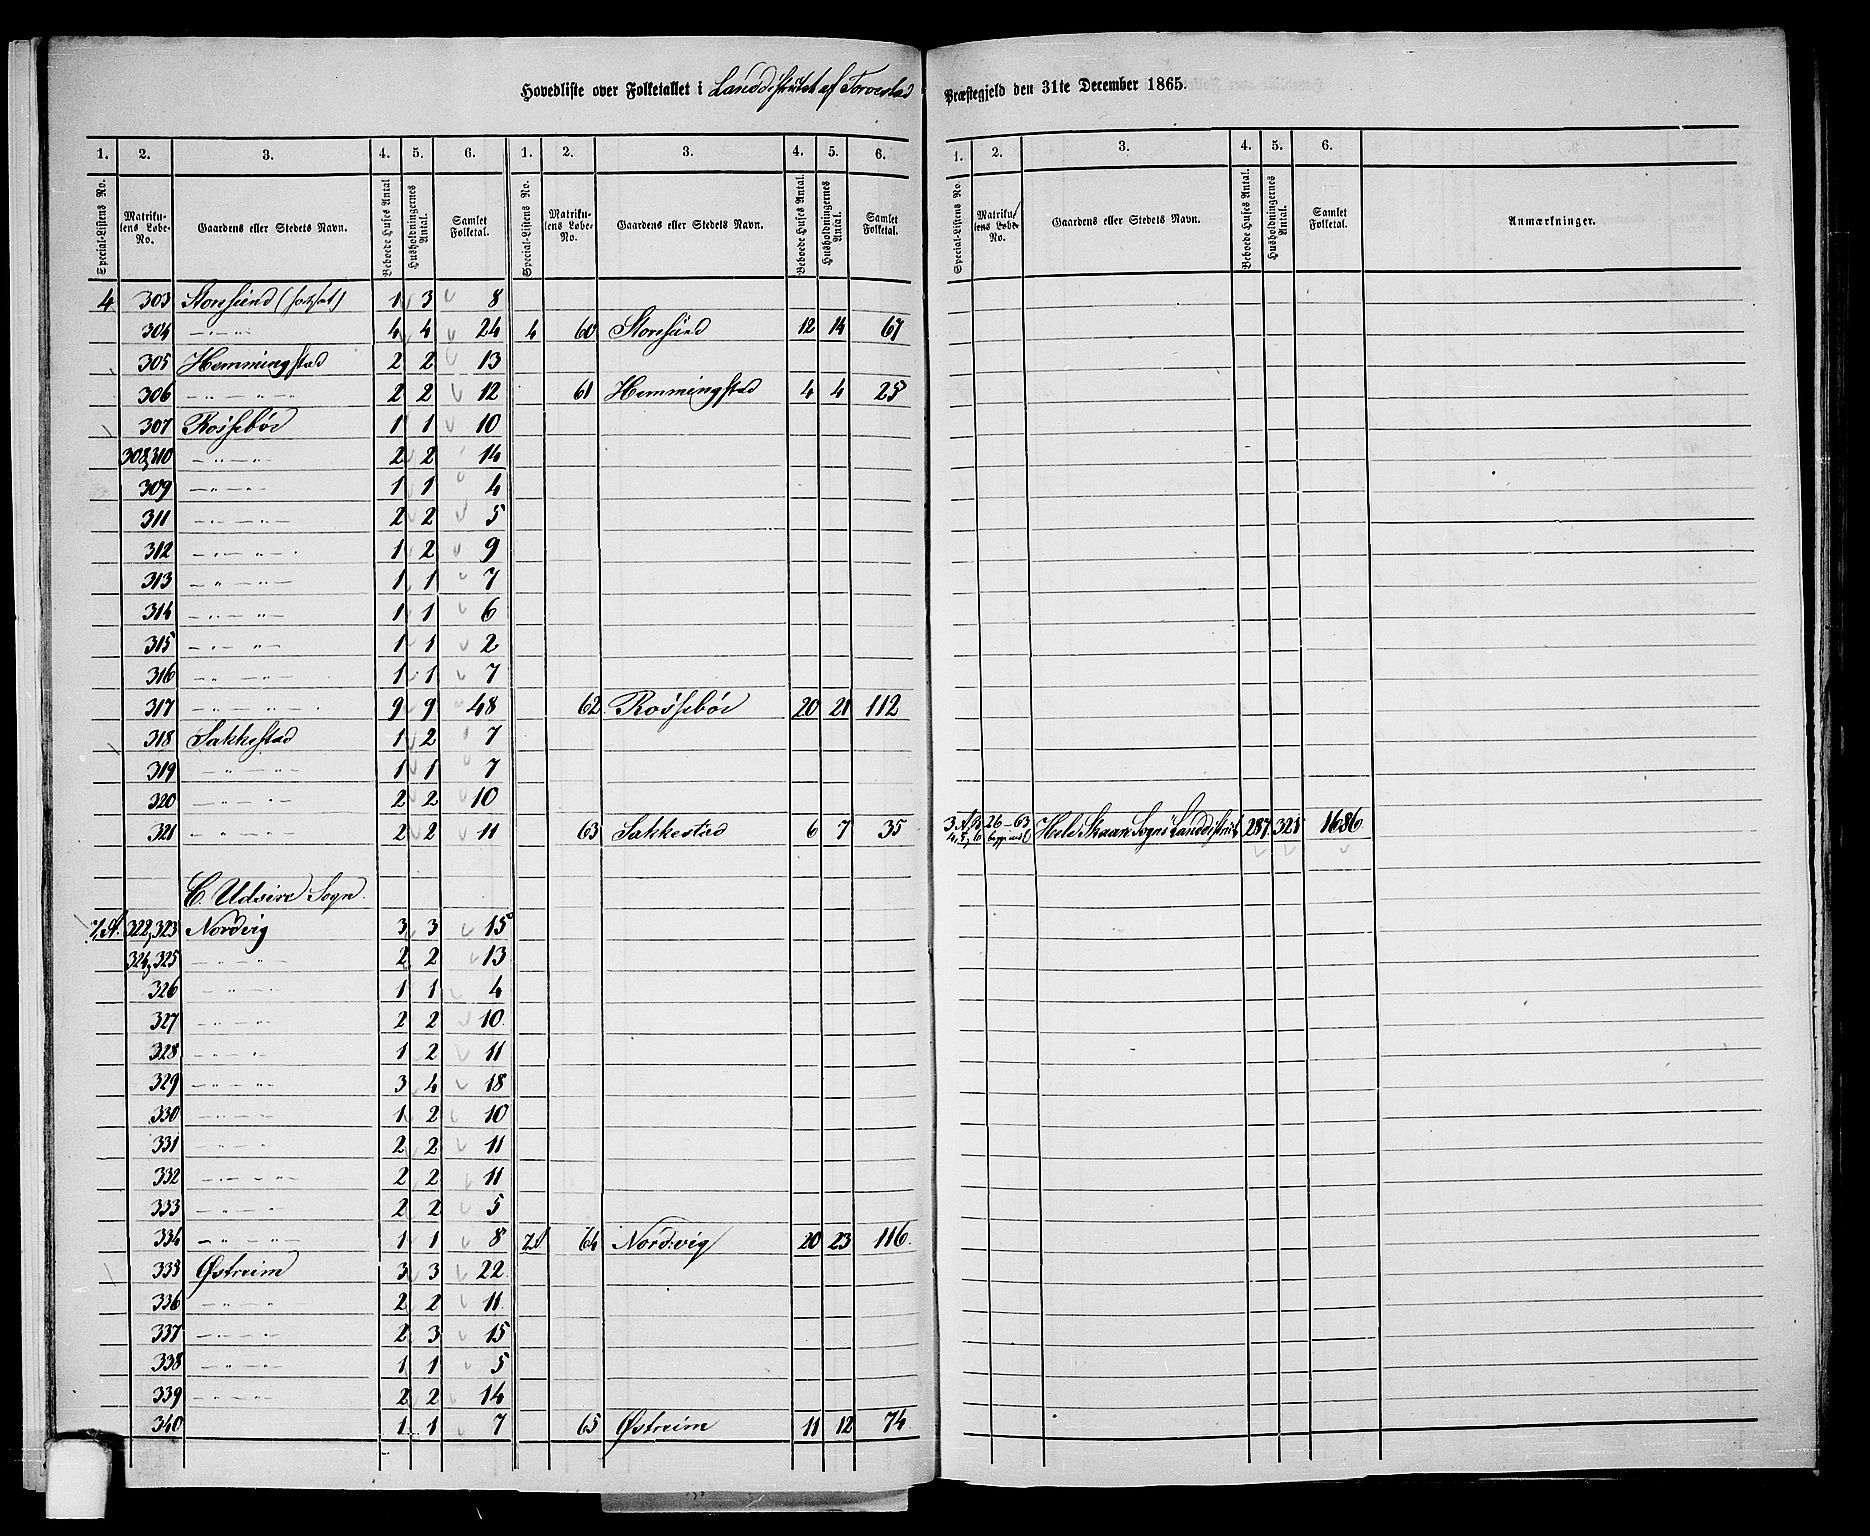 Hovedliste over Folketallet i Landdistriktet af Torvestad Præstegjeld den 31te December 1865.
1. 2. 3. 4. 5. 6. 1. 2. 3. 4. 5. 6. 1. 2. 3. 4. 5. 6.
Special-Listens No. Matrikulens Løbe-No. Gaardens eller Stedets Navn. Beboede Huses Antal Husholdningernes Antal. Samlet Folketal. Special-Listens No. Matrikulens Løbe-No. Gaardens eller Stedets Navn. Beboede Huses Antal. Husholdningernes Antal. Samlet Folketal. Special-Listens No. Matrikulens Løbe-No. Gaardens eller Stedets Navn. Beboede Huses Antal. Husholdningernes Antal. Samlet Folketal. Anmærkninger.
4 303 Storesund (fortsat) 1 3 8
304 — „ — „ 4 4 24 4 60 Storesund 12 14 67
305 Hemmingstad 2 2 13
306 — „ — „ — 2 2 12 61 Hemmingstad 4 4 25
307 Røssebøe 1 1 10
308,310 — „ — „ — 2 2 14
309 — „ — „ — 1 1 4
311 — „ — „ — 2 2 5
312 — „ — „ — 1 2 9
313 — „ — „ — 1 1 7
314 — „ — „ — 1 1 6
315 — „ — „ — 1 1 2
316 — „ — „ — 1 1 7
317 — „ — „ — 9 9 48 62 Røssebøe 20 21 112
318 Sakkestad 1 2 7
319 — „ — „ — 1 1 7
320 — „ — „ — 2 2 10
321 — „ — „ — 2 2 11 63 Sakkestad 6 7 35 3, A, B, 4, 5, 6 26-63 begge incl Hele Skaare Sogns Landdistrikt 287 328 1686
C. Udsire Sogn.
7,A. 322,323 Nordvig 3 3 15
324,325 — „ — „ — 2 2 13
326 — „ — „ 1 1 4
327 — „ — „ 2 2 10
328 — „ — „ 1 2 11
329 — „ — „ 3 4 18
330 — „ — „ 1 2 10
331 — „ — „ 2 2 11
332 — „ — „ — 2 2 11
333 — „ — „ — 2 2 5
334 — „ — „ — 1 1 8 7A 64 Nordvig 20 23 116
335 Østreim 3 3 22
336 — „ — „ 2 2 11
337 — „ — „ — 2 3 15
338 — „ — „ — 1 1 5
339 — „ — „ — 2 2 14
340 1 1 7 65 Østreim 11 12 74